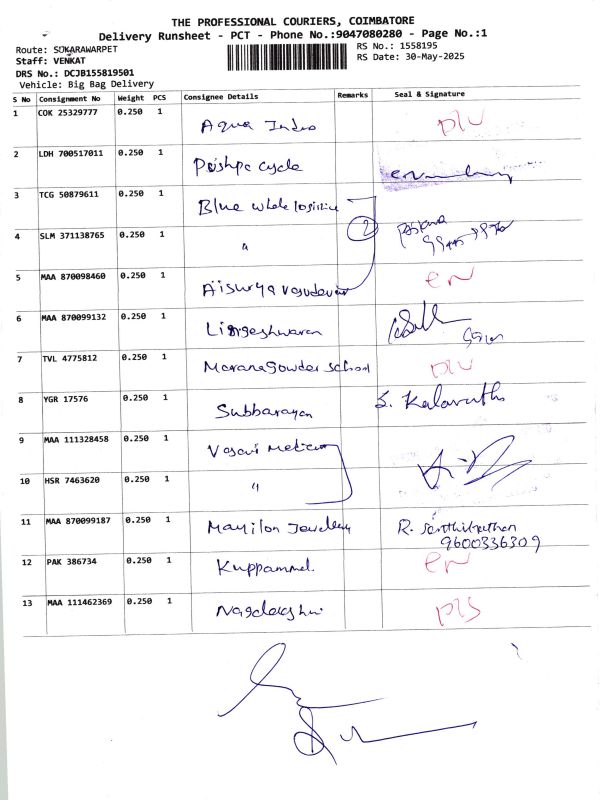 THE PROFESSIONAL COURIERS, COIMBATORE
Delivery Runsheet - PCT - Phone No.:9047080280 - Page No.:1
Route: SUKARAWARPET
RS No.: 1558195
Staff: VENKAT
RS Date: 30-May-2025
DRS No.: DCJB155819501
Vehicle: Big Bag Delivery
S No Consignment No Weight PCS Consignee Details Remarks Seal & Signature
1 COK 25329777 0.250 1 Aqua Indro
2 LDH 700517011 0.250 1 Pushpa cycle
3 TCG 50879611 0.250 1 Blue whale logistics
4 SLM 371138765 0.250 1 " 2
5 MAA 870098460 0.250 1 Aisurya Vasudevan en
6 MAA 870099132 0.250 1 Lingeshwaran
7 TVL 4775812 0.250 1 MaranaGowder School
8 YGR 17576 0.250 1 Subbarayan S. Kalavathi
9 MAA 111328458 0.250 1 Vasavi Medicur
10 HSR 7463620 0.250 1 "
11 MAA 870099187 0.250 1 Mayilon Jewellery R. Senthilnathan
9600336309
12 PAK 386734 0.250 1 Kuppammal en
13 MAA 111462369 0.250 1 Nagalakshmi